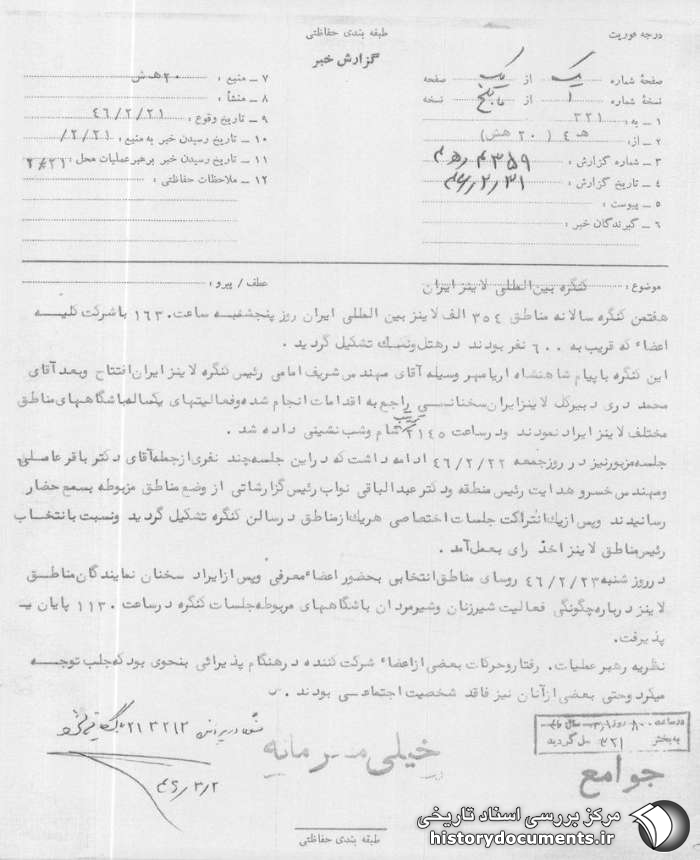 درجه فوریت
طبقه بندی حفاظتی
گزارش خبر
صفحه شماره یک از یک صفحه
نسخه شماره ۱ از پنج نسخه
۱ ــ به: ۳۲۱
۲ ــ از: هـ ۴ ( ۲۰ هش)
۳ ــ شماره گزارش : ۴۳۵۹
۴ ــ تاریخ گزارش : ۴۶/۲/۳۱
۵ ــ پیوست :
۶ ــ گیرندگان خبر :
۷ ــ منبع : ۲۰ هـ ش
۸ ــ منشأ :
۹ ــ تاریخ وقوع : ۴۶/۲/۲۱
۱۰ ــ تاریخ رسیدن خبر به منبع: ۲/۲۱/
۱۱ ــ تاریخ رسیدن خبر برهبر عملیات محل:
۱۲ ــ ملاحظات حفاظتی :
موضوع: کنگره بین المللی لاینز ایران
عطف / پیرو:
هفتمین کنگره سالانه مناطق ۳۵۴ الف لاینز بین المللی ایران روز پنجشنبه ساعت ۱۶۳۰ با شرکت کلیه
اعضاء که قریب به ۶۰۰ نفر بودند در هتل ونک تشکیل گردید .
این کنگره با پیام شاهنشاه اریامهر وسیله آقای مهندس شریف امامی رئیس کنگره لاینز ایران افتتاح وبعد آقای
محمد دری دبیرکل لاینز ایران سخنانی راجع به اقدامات انجام شده وفعالیتهای یکساله باشگاههای مناطق
مختلف لاینز ایراد نمودند ودر ساعت ۲۱۴۵ شام وشب نشینی داده شد .
جلسه مزبور نیز در روز جمعه ۴۶/۲/۲۲ ادامه داشت که در این جلسه چند نفری از جمله آقای دکتر باقر عاملی
ومهندس خسرو هدایت رئیس منطقه ودکتر عبدالباقی نواب رئیس گزارشاتی از وضع مناطق مربوطه بسمع حضار
رسانیدند وپس از یک انتراکت جلسات اختصاصی هریک از مناطق در سالن کنگره تشکیل گردید ونسبت بانتخاب
رئیس مناطق لاینز اخذ رای بعمل آمد .
در روز شنبه ۴۶/۲/۲۳ روسای مناطق انتخابی بحضور اعضاء معرفی وپس از ایراد سخنان نمایندگان مناطق
لاینز درباره چگونگی فعالیت شیرزنان وشیرمردان باشگاههای مربوطه جلسات کنگره در ساعت ۱۱۳۰ پایان
پذیرفت.
نظریه رهبر عملیات. رفتار وحرکات بعضی از اعضاء شرکت کننده در هنگام پذیرائی بنحوی بود که جلب توجه
میکرد وحتی بعضی از آنان نیز فاقد شخصیت اجتماعی بودند .
در ساعت ۸۰۰ روز
به بخش ۳۲۱ گردید
خیلی محرمانه
جوامع
۴۶/۳/۲
طبقه بندی حفاظتی
مرکز بررسی اسناد تاریخی
historydocuments.ir